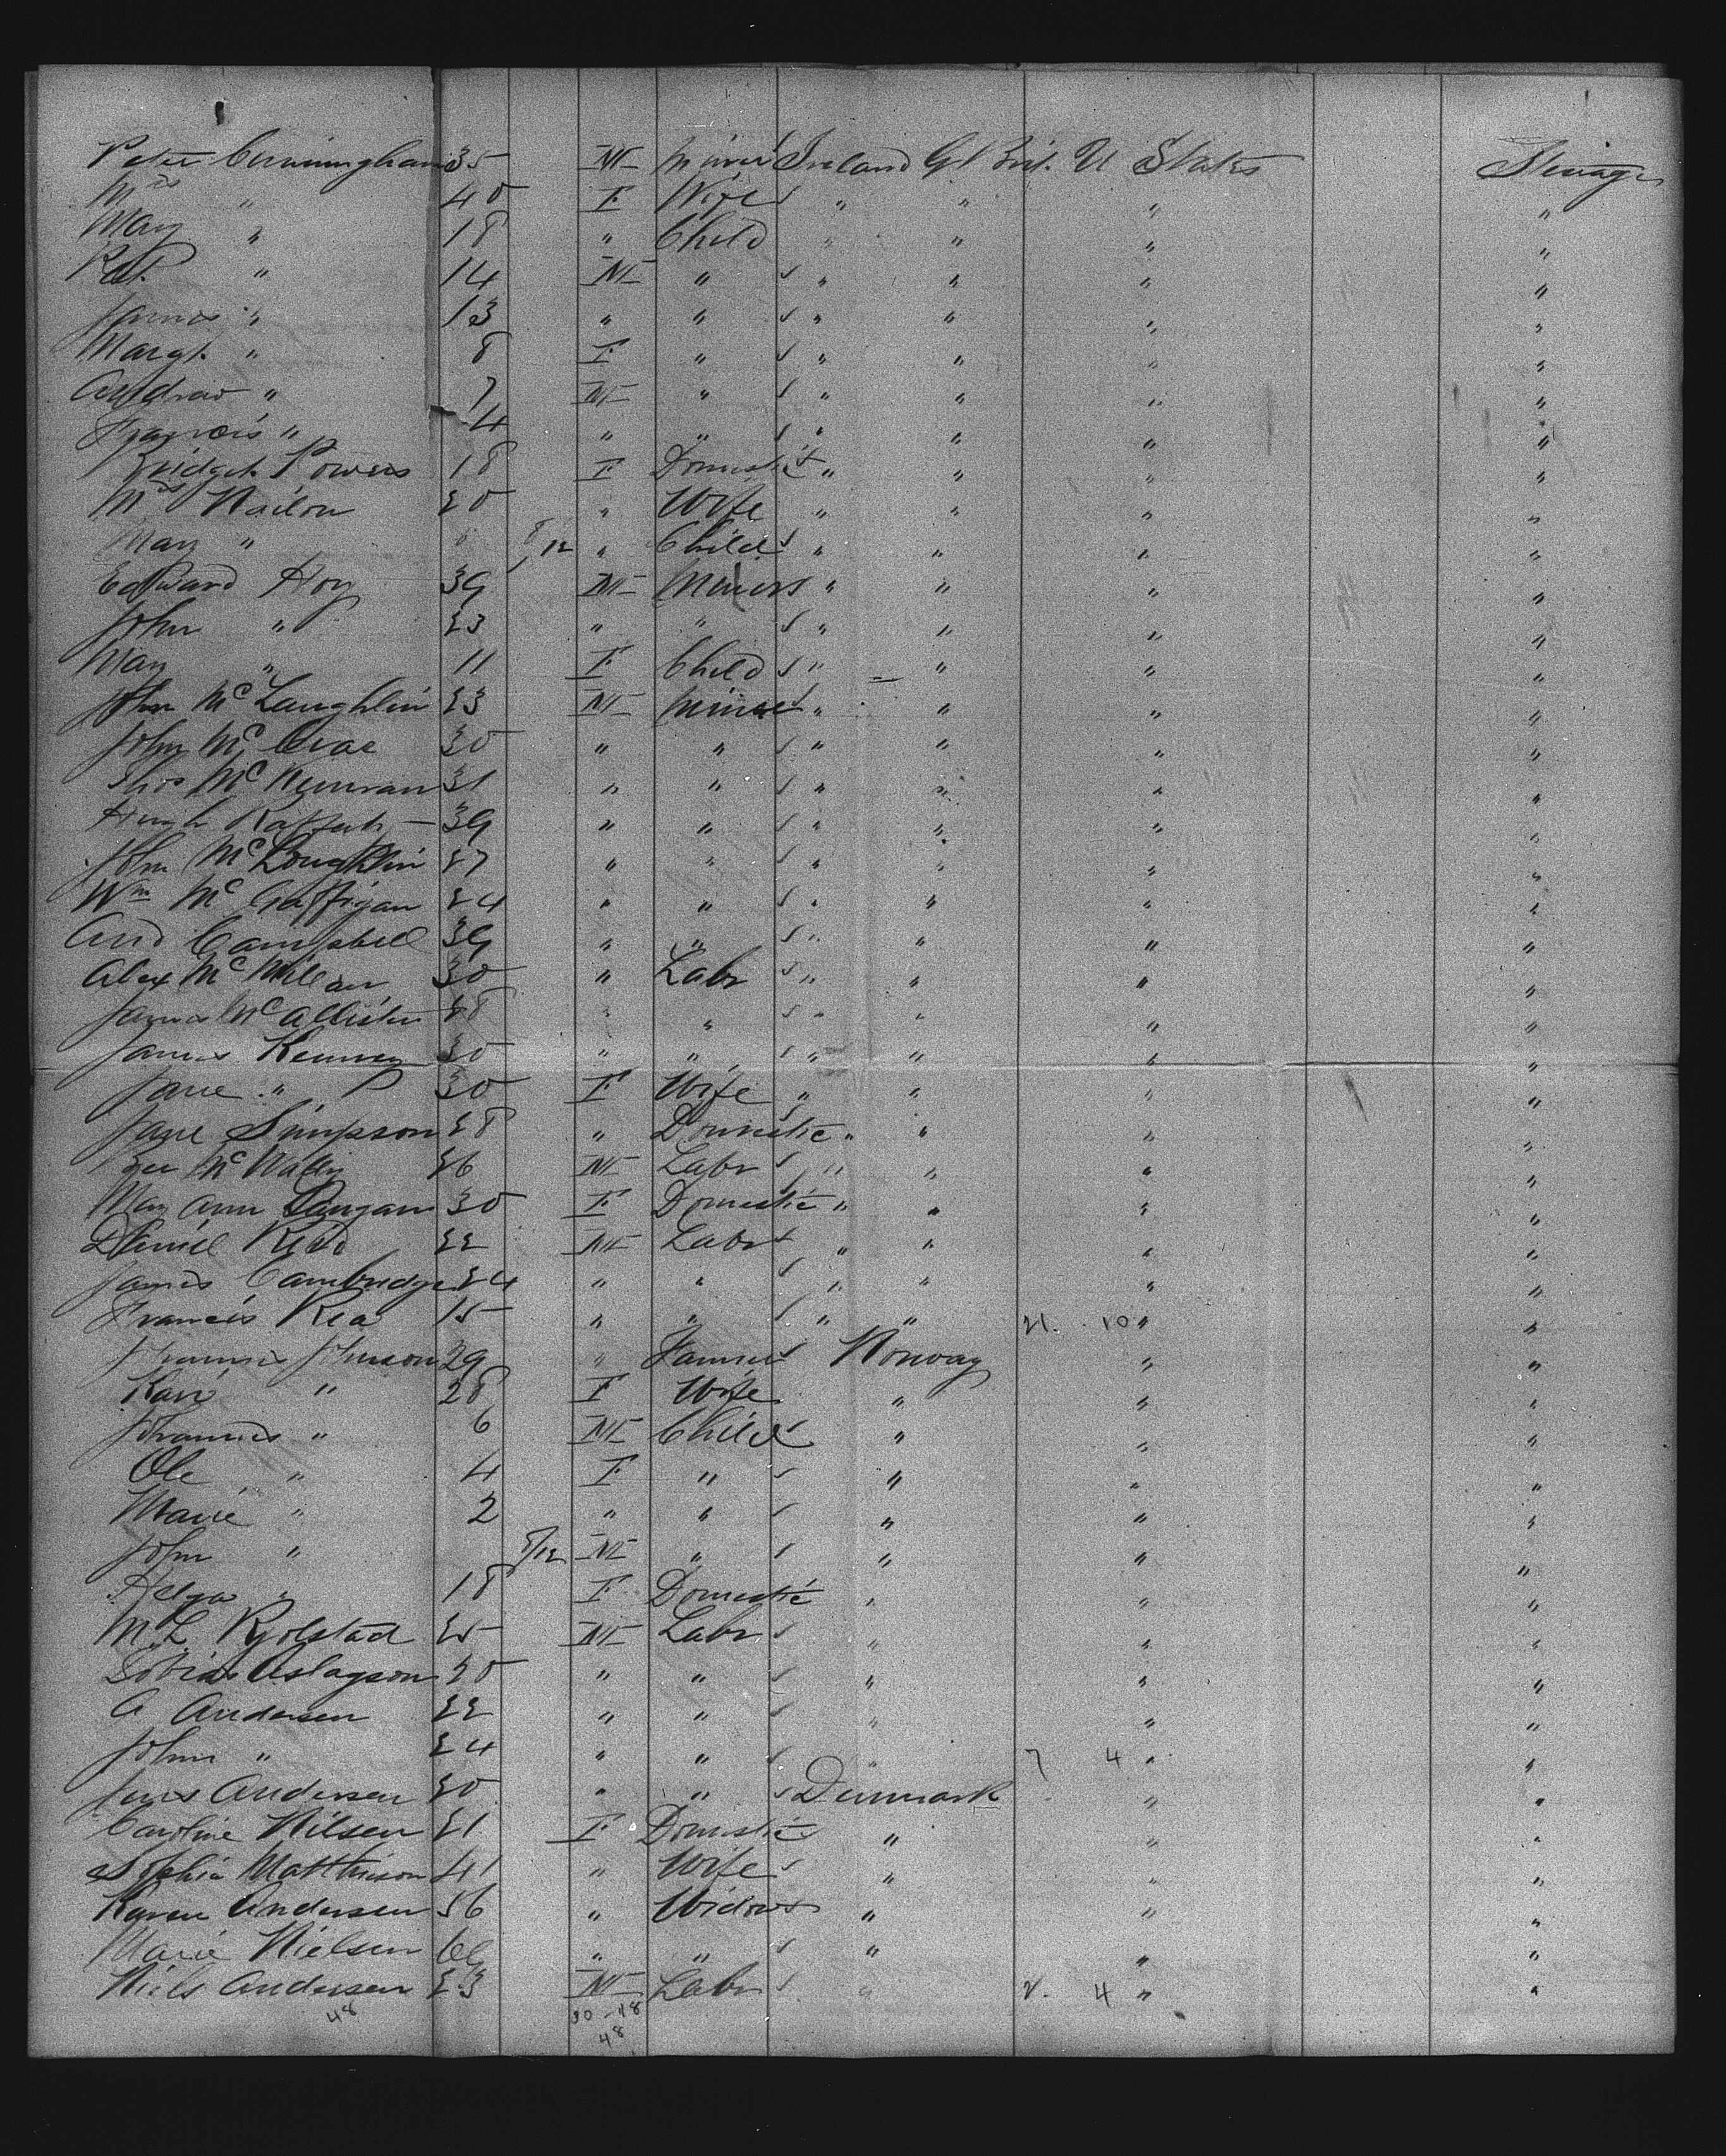 Peter Cunningham 35 M Miner Ireland Gt Brit. U States Steerage
Mrs " 40 F Wife " " " "
Mary " 18 " Child " " " "
Pat. " 14 M " " " " "
James " 13 " " " " " "
Margt. " 8 F " " " " "
Andrew " 7 M " " " " "
Francis " 4 " " " " " "
Bridget Powers 18 F Domestic " " " "
Mrs Nailon 20 " Wife " " " "
Mary " 8/12 " Child " " " "
Edward Hoy 39 M Miner " " " "
John " 23 " " " " " "
Mary " 11 F Child " " " "
John McLaughlin 23 M Miner " " " "
John McCrae 30 " " " " " "
Thos McKurnan 31 " " " " " "
Hugh 39 " " " " " "
John McLoughlin 27 " " " " " "
Wm McGaffigan 24 " " " " " "
And Campbell 39 " " " " " "
Alex McMillan 30 " Labr " " " "
James McAllister 28 " " " " " "
James Kenney 30 " " " " " "
Jane " 30 F Wife " " " "
Jane Simpson 28 " Domestic " " " "
McNally 26 M Labr " " " "
Mary Ann Dungan 30 F Domestic " " " "
Daniel Kidd 22 M Labr " " " "
James Cambridge 24 " " " " " "
Francis Rea 15 " " " " 21. 10 " "
Johannes Johnson 29 " Farmer Norway " "
Kari " 28 F Wife " " "
Johannes " 6 M Child " " "
Ole " 4 F " " " "
Marie " 2 " " " " "
John " 8/12 M " " " "
Helga " 18 F Domestic " " "
M. L. Rjolstad 25 M Labr " " "
Tobias Aslagson 20 " " " " "
A Andersen 22 " " " " "
John " 24 " " " 7 4 " "
Jens Andersen 20 " " Denmark " "
Caroline Nilsen 21 F Domestic " " "
Sophia Matthieson 41 " Wife " " "
Karen Andersen 56 " Widow " " "
Marie Nielsen 69 " " " " "
Niels Andersen 23 M Labr " 2. 4 " "
48 30 - 18
48